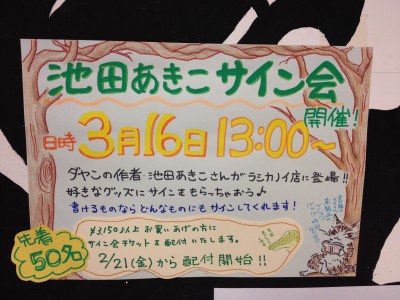 池田あきこサイン会
開催!
日時 3月16日 13:00〜
ダヤンの作者・池田あきこさんがラシカノイ店に登場!!
好きなグッズにサインをもらっちゃおう♪
書けるものならどんなものにもサインしてくれます!
¥3150以上お買いあげの方に
サイン会チケットを配付いたします。
2/21(金)から配付開始!!
先着
50名